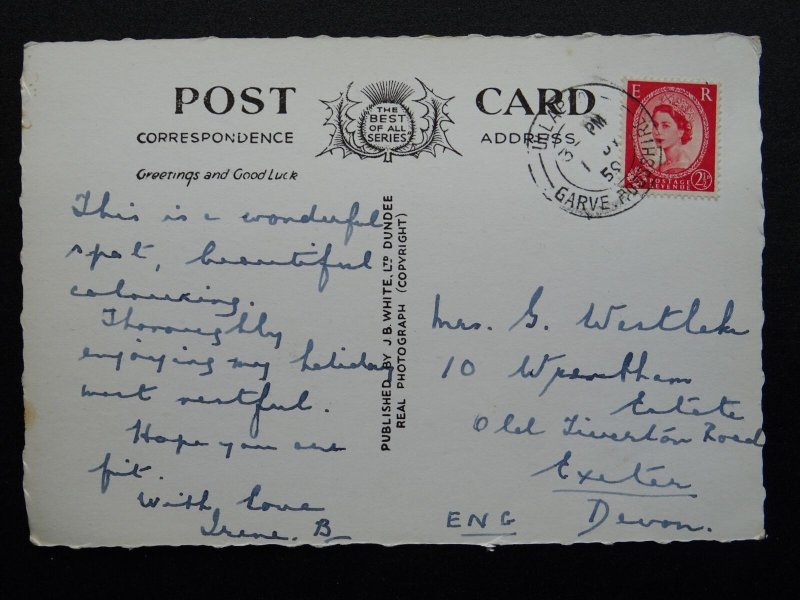 POST CARD
THE
BEST
OF ALL
SERIES
CORRESPONDENCE
ADDRESS
Greetings and Good Luck
This is a wonderful
spot, beautiful
colouring.
Thoroughly
enjoying my holiday
most restful.
Hope you are
fit.
With love
Irene. B
PUBLISHED BY J.B. WHITE, LTD DUNDEE
REAL PHOTOGRAPH (COPYRIGHT)
E R
POSTAGE
REVENUE
2½
PM
GARVE ROSS-SHIRE
Mrs. G. Westlake
10 Wrentham
Estate
Old Tiverton Road
Exeter
Devon.
ENG